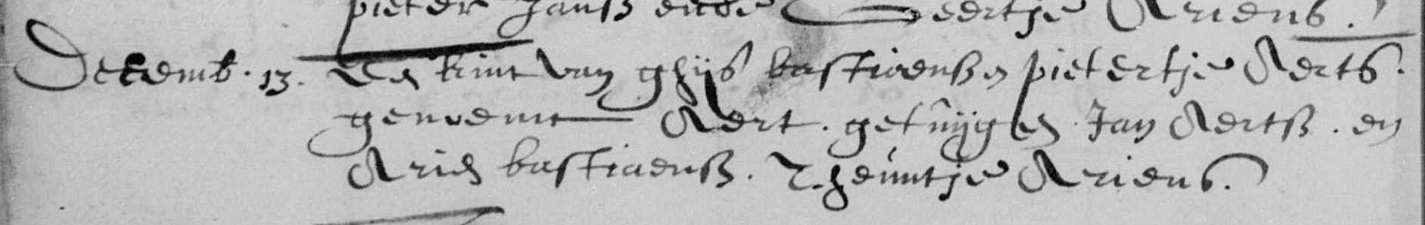 pieter Janß ende Geertje Ariens.
Decemb. 13. Een kint van ghijs bastiaenß en pietertje Aerts.
genoemt Aert. getuijgen Jan Aertß. en
Arien bastiaenß. Theuntje Ariens.